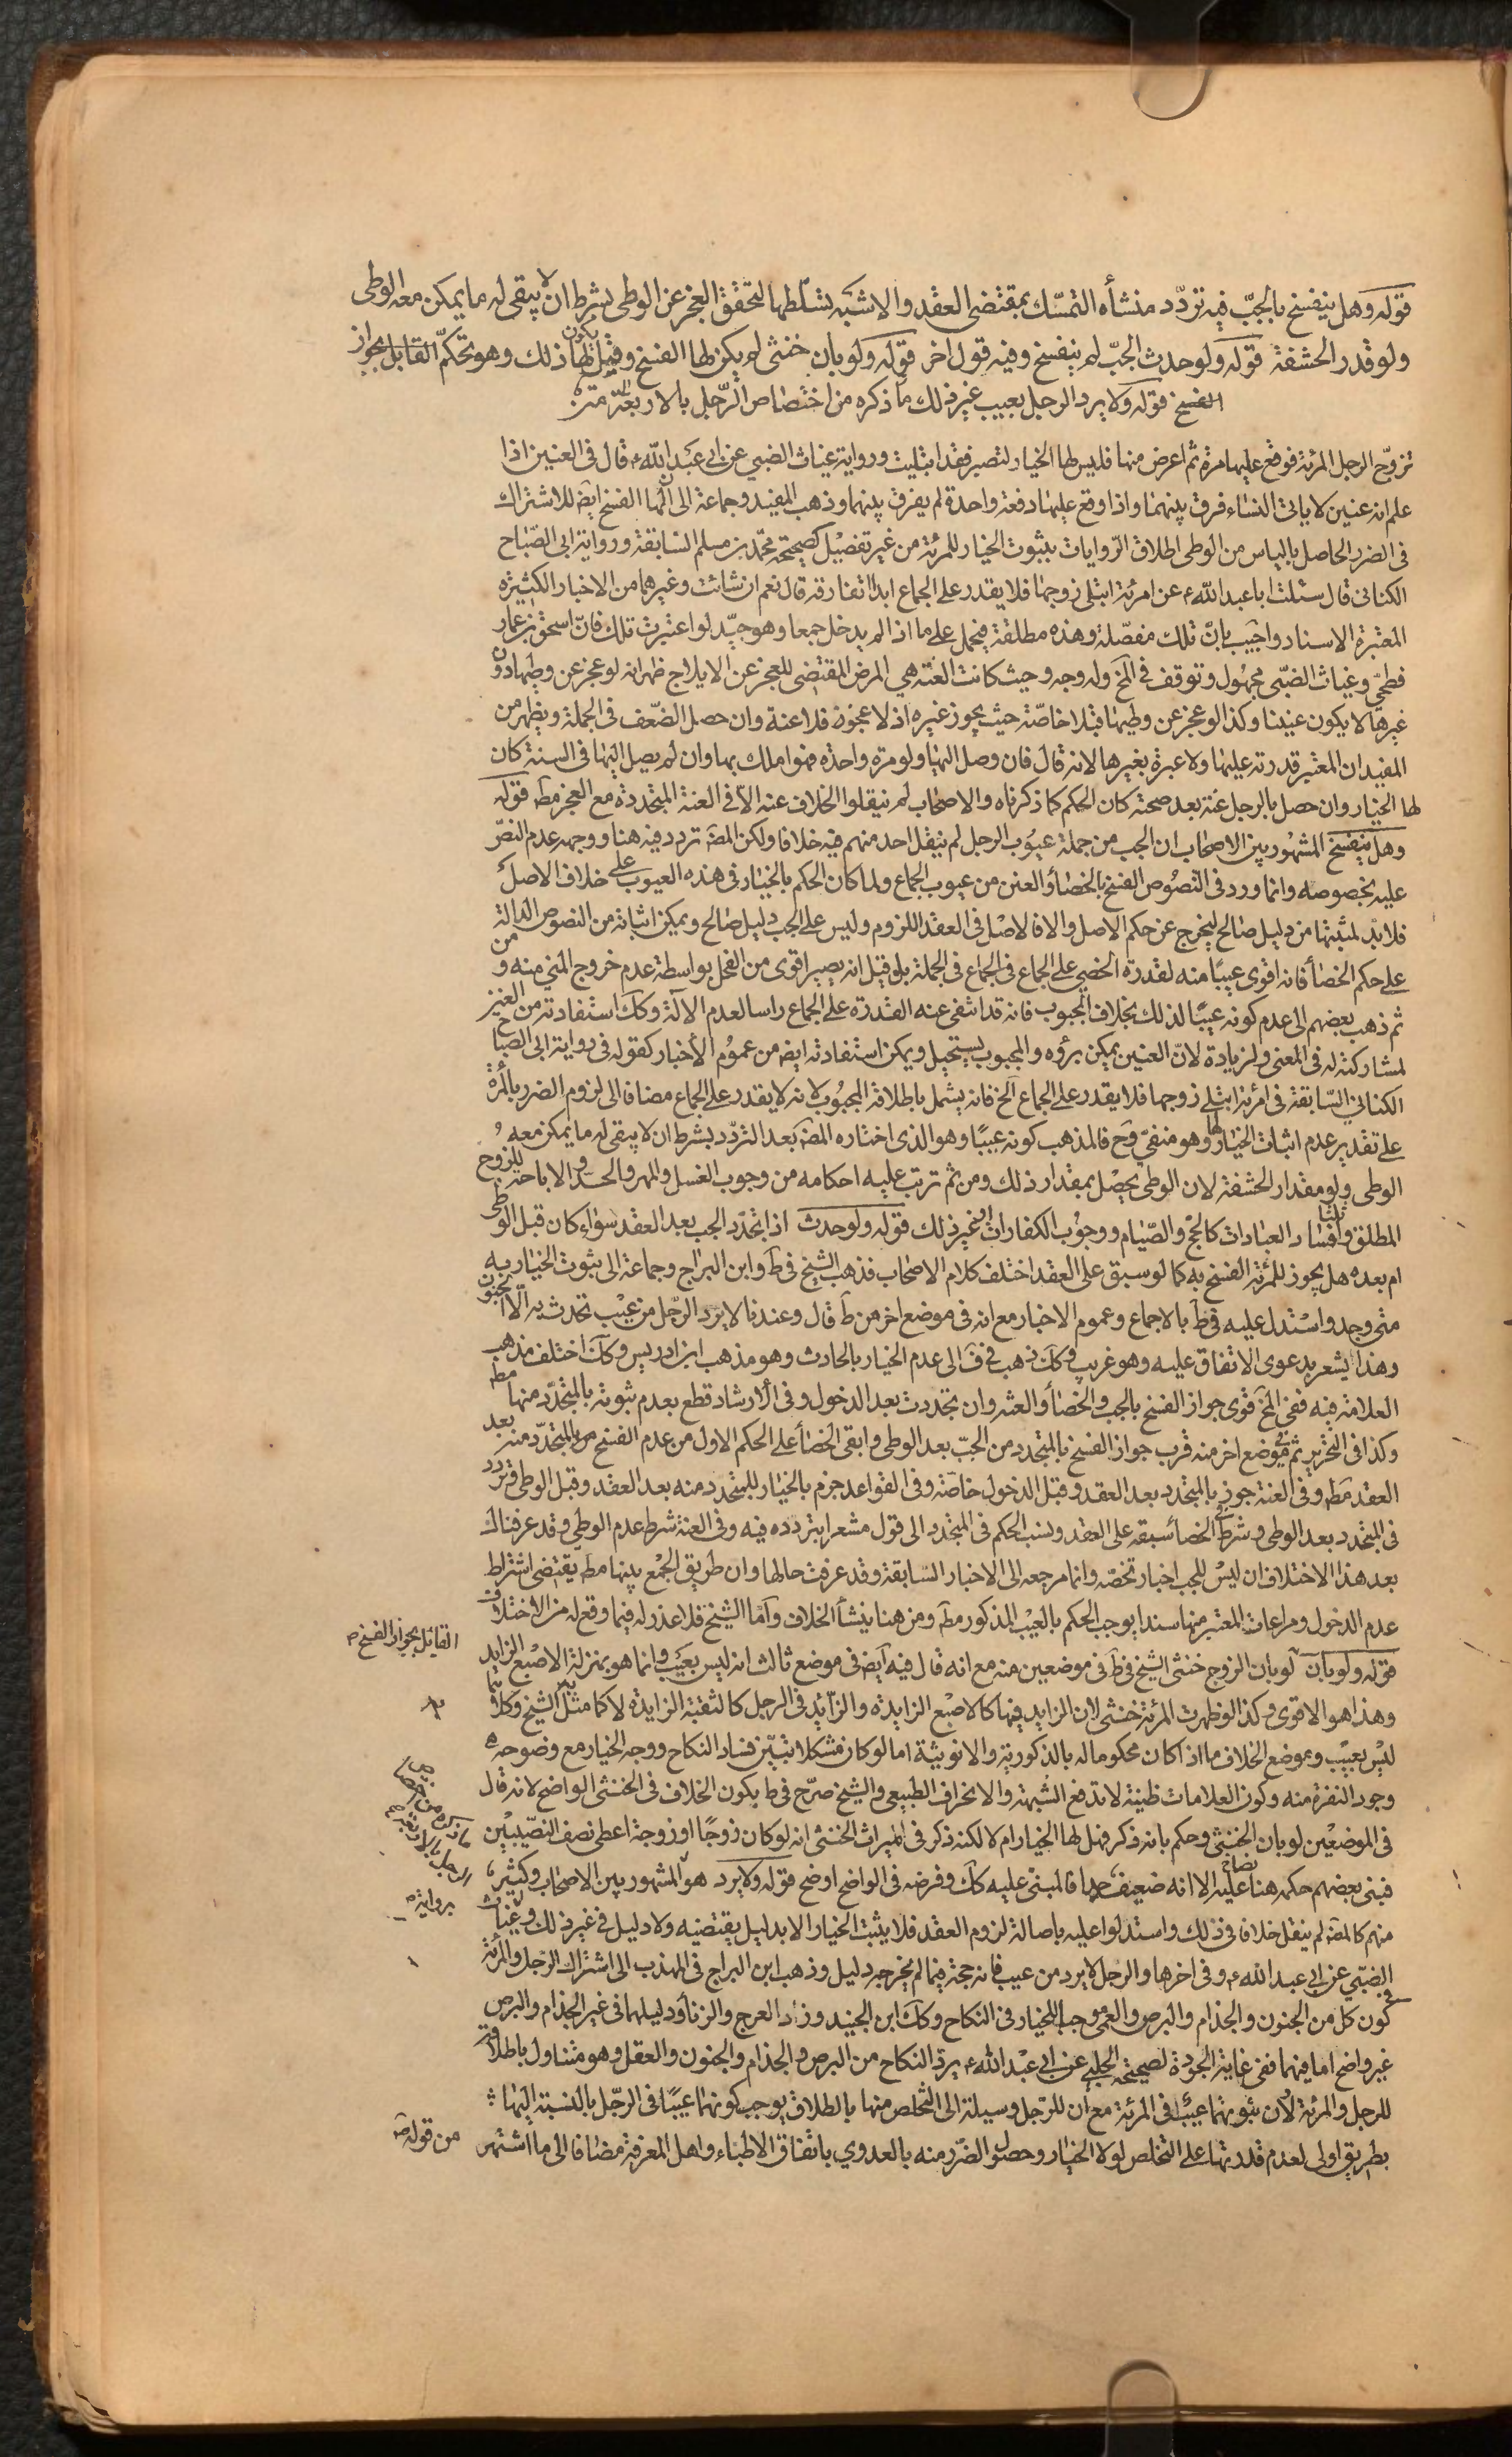 قوله وهل ينفسخ بالجبّ فيه تردّد منشأه التمسّك بمقتضى العقد والاشبه تسلّطها لتحقق العجز عن الوطى بشرط ان لا يبقى له ما يمكن معه الوطى
ولو قدر الحشفة قوله ولو حدث الجبّ لم ينفسخ وفيه قول اخر قوله ولو بان خنثى لم يكن لها الفسخ وقيل يكون لها ذلك وهو تحكم القايل بجواز
الفسخ قوله ولا يرد الرجل بعيب غير ذلك ما ذكره من اختصاص الرّجل بالاربعة
تزوّج الرجل المرئة فوقع عليها مرة ثم اعرض منها فليس لها الخيار لتصبر فقد ابتليت ورواية غياث الضبي عن ابى عبد الله ع قال فى العنين اذا
علم انه عنين لا ياتى النساء فرق بينهما واذا وقع عليها دفعة واحدة لم يفرق بينهما وذهب المفيد وجماعة الى ان لها الفسخ ايضا للاشتراك
فى الضرر الحاصل بالياس من الوطى اطلاق الروايات بثبوت الخيار للمرئة من غير تفصيل كصحيحة محمّد بن مسلم السّابقة ورواية ابى الصّباح
الكنانى قال سئلت ابا عبد الله ع عن امرئة ابتلى زوجها فلا يقدر على الجماع ابدا اتفارقه قال نعم ان شائت وغيرهما من الاخبار الكثيرة
المعتبرة الاسناد واجيب بانّ تلك مفصّلة وهذه مطلقة فيحمل على ما اذا لم يدخل جمعا وهو جيّد لو اعتبرت تلك فانّ اسحق بن عمار
فطحىّ وغياث الضبّى مجهول وتوقف فى المخ وله وجه وحيث كانت العنّة هي المرض المقتضى للعجز عن الايلاج ظهر انه لو عجز عن وطيها دون
غيرها لا يكون عنينا وكذا لو عجز عن وطيها قبلا خاصّة حيث يجوز غيره اذ لا عجز فلا عنة وان حصل الضّعف فى الجملة ويظهر من
المفيد ان المعتبر قدرته عليها ولا عبرة بغيرها لانه قال فان وصل اليها ولو مرة واحدة فهو املك بها وان لم يصل اليها فى السنة كان
لها الخيار وان حصل بالرجل عنة بعد صحته كان الحكم كما ذكرناه والاصحاب لم ينقلوا الخلاف عنه الا فى العنة المتجددة مع العجز مطه قوله
وهل ينفسخ المشهور بين الاصحاب ان الجب من جملة عيوب الرجل لم ينقل احد منهم فيه خلافا ولكن المصه تردد فيه هنا ووجهه عدم النصّ
عليه بخصوصه وانما ورد فى النّصوص الفسخ بالخصاء والعنن من عيوب الجماع ولما كان الحكم بالخيار فى هذه العيوب على خلاف الاصل
فلا بدّ لمثبتها من دليل صالح ليخرج عن حكم الاصل والا فالاصل فى العقد اللزوم وليس على الجب دليل صالح ويمكن اثباته من النصوص الدالة
على حكم الخصاء فانه اقوى عيبًا منه لقدرة الخصي على الجماع فى الجملة بل قيل انه يصير اقوى من الفحل بواسطة عدم خروج المني منه ومن
ثم ذهب بعضهم الى عدم كونه عيبًا لذلك بخلاف المجبوب فانه قد انتفى عنه القدرة على الجماع راسا لعدم الآلة وكك استفادته من العنين
لمشاركته له فى المعنى ولزيادة لانّ العنين يمكن برؤه والمجبوب يستحيل ويمكن استفادته ايضا من عموم الاخبار كقوله فى رواية ابى الصّباح
الكناني السّابقة فى امرئة ابتلى زوجها فلا يقدر على الجماع الخ فانه يشمل باطلاقه المجبوب لانه لا يقدر على الجماع مضافا الى لزوم الضرر بالمرأة
على تقدير عدم اثبات الخيار لها وهو منفىّ وح فالمذهب كونه عيبًا وهو الذى اختاره المصه بعد التردّد بشرط ان لا يبقى له ما يمكن معه
الوطى ولو مقدار الحشفة لان الوطى يحصل بمقدار ذلك ومن ثم ترتب عليه احكامه من وجوب الغسل والمهر والحدّ والاباحة للزوج
المطلق ثلثا وافساد العبادات كالحجّ والصّيام ووجوب الكفارات وغير ذلك قوله ولو حدث اذا تجدّد الجب بعد العقد سواء كان قبل الوطى
ام بعده هل يجوز للمرئة الفسخ به كما لو سبق على العقد اختلف كلام الاصحاب فذهب الشيخ فى ط وابن البراج وجماعة الى ثبوت الخيار به
متى وجد واستدل عليه فى ط بالاجماع وعموم الاخبار مع انه فى موضع اخر من ط قال وعندنا لا يردّ الرجل من عيب تحدث به الا الجنون
وهذا يشعر بدعوى الاتفاق عليه وهو غريب وكك ذهب فى ف الى عدم الخيار بالحادث وهو مذهب ابن ادريس وكك اختلف مذهب
العلامة فيه ففى المخ قوى جواز الفسخ بالجب والخصاء والعنة وان تجددت بعد الدخول وفى الارشاد قطع بعدم ثبوته بالمتجدّد منها مطه
وكذا فى التحرير ثم فى موضع اخر منه قرب جواز الفسخ بالمتجدد من الجبّ بعد الوطى وابقى الخصاء على الحكم الاول من عدم الفسخ بالمتجدّد منه بعد
العقد مطه وفى العنة جوز بالمتجدد بعد العقد وقبل الدخول خاصّة وفى القواعد جزم بالخيار للمتجدد منه بعد العقد وقبل الوطى وتردد
فى المتجدد بعد الوطى وشرط فى الخصاء سبقه على العقد ونسب الحكم فى المتجدد الى قول مشعرا بتردده فيه وفى العنة شرط عدم الوطى وقد عرفناك
بعد هذا الاختلاف ان ليس للجب اخبار تخصّه وانما مرجعه الى الاخبار السّابقة وقد عرفت حالها وان طريق الجمع بينها مطه يقتضى اشتراط
عدم الدخول ومراعات المعتبر منها سندا يوجب الحكم بالعيب المذكور مطه ومن هنا ينشأ الخلاف وامّا الشيخ فلا عذر له فيما وقع له من الاختلاف
قوله ولو بان لو بان الزوج خنثى الشيخ فى ط فى موضعين منه مع انه قال فيه ايضا فى موضع ثالث انه ليس بعيب وانما هو بمنزلة الاصبع الزايد
القائل بجواز الفسخ
وهذا هو الاقوى وكذا لو ظهرت المرئة خنثى لان الزايد فيها كالاصبع الزايدة والزّايد فى الرجل كالثقبة الزايدة لا كما مثل الشيخ وكلاهما
ليس بعيب وموضع الخلاف ما اذا كان محكوما له بالذكورية والانوثية اما لو كان مشكلا تبيّن فساد النكاح ووجه الخيار مع وضوحه
وجود النفرة منه وكون العلامات ظنية لا تدفع الشبهة والانحراف الطبيعى والشيخ صرّح فى ط بكون الخلاف فى الخنثى الواضح لانه قال
فى الموضعين لو بان الخنثى وحكم بانه ذكر فهل لها الخيار ام لا لكنه ذكر فى الميراث الخنثى انه لو كان زوجًا او زوجة اعطى نصف النصيبين
فبنى بعضهم حكمه هنا عليه الا انه ضعيف جدا فالمبنى عليه كك وفرضه فى الواضح اوضح قوله ولا يرد هو المشهور بين الاصحاب وكثير
منهم كالمصه لم ينقل خلافا فى ذلك واستدلوا عليه باصالة لزوم العقد فلا يثبت الخيار الا بدليل يقتضيه ولا دليل فى غير ذلك وغياث
بروايه
الضبّي عن ابى عبد الله ع وفى اخرها والرجل لا يرد من عيب فانه حجة فيما لم يخرجه دليل وذهب ابن البراج فى المهذب الى اشتراك الرّجل والمرئة
فى كون كل من الجنون والجذام والبرص والعمى موجبا للخيار فى النكاح وكك ابن الجنيد وزاد العرج والزنا ودليلهما فى غير الجذام والبرص
غير واضح اما فيهما ففى غاية الجودة لصحيحة الحلبي عن ابى عبد الله ع يرد النكاح من البرص والجذام والجنون والعفل وهو متناول باطلاقه
للرجل والمرئة لان ثبوتهما عيبا فى المرئة مع ان للرّجل وسيلة الى التخلص منها بالطلاق يوجب كونهما عيبًا فى الرّجل بالنسبة اليها
بطريق اولى لعدم قدرتها على التخلص لولا الخيار وحصول الضّرر منه بالعدوي باتفاق الاطباء واهل المعرفة مضافا الى ما اشتهر
من قوله ص